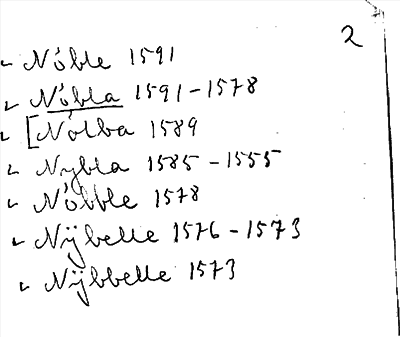 2
Nóble 1591
Nóbla 1591-1578
[Nólba 1589
Nybla 1585-1555
Nóbble 1578
Nÿbelle 1576-1573
Nÿbbelle 1573